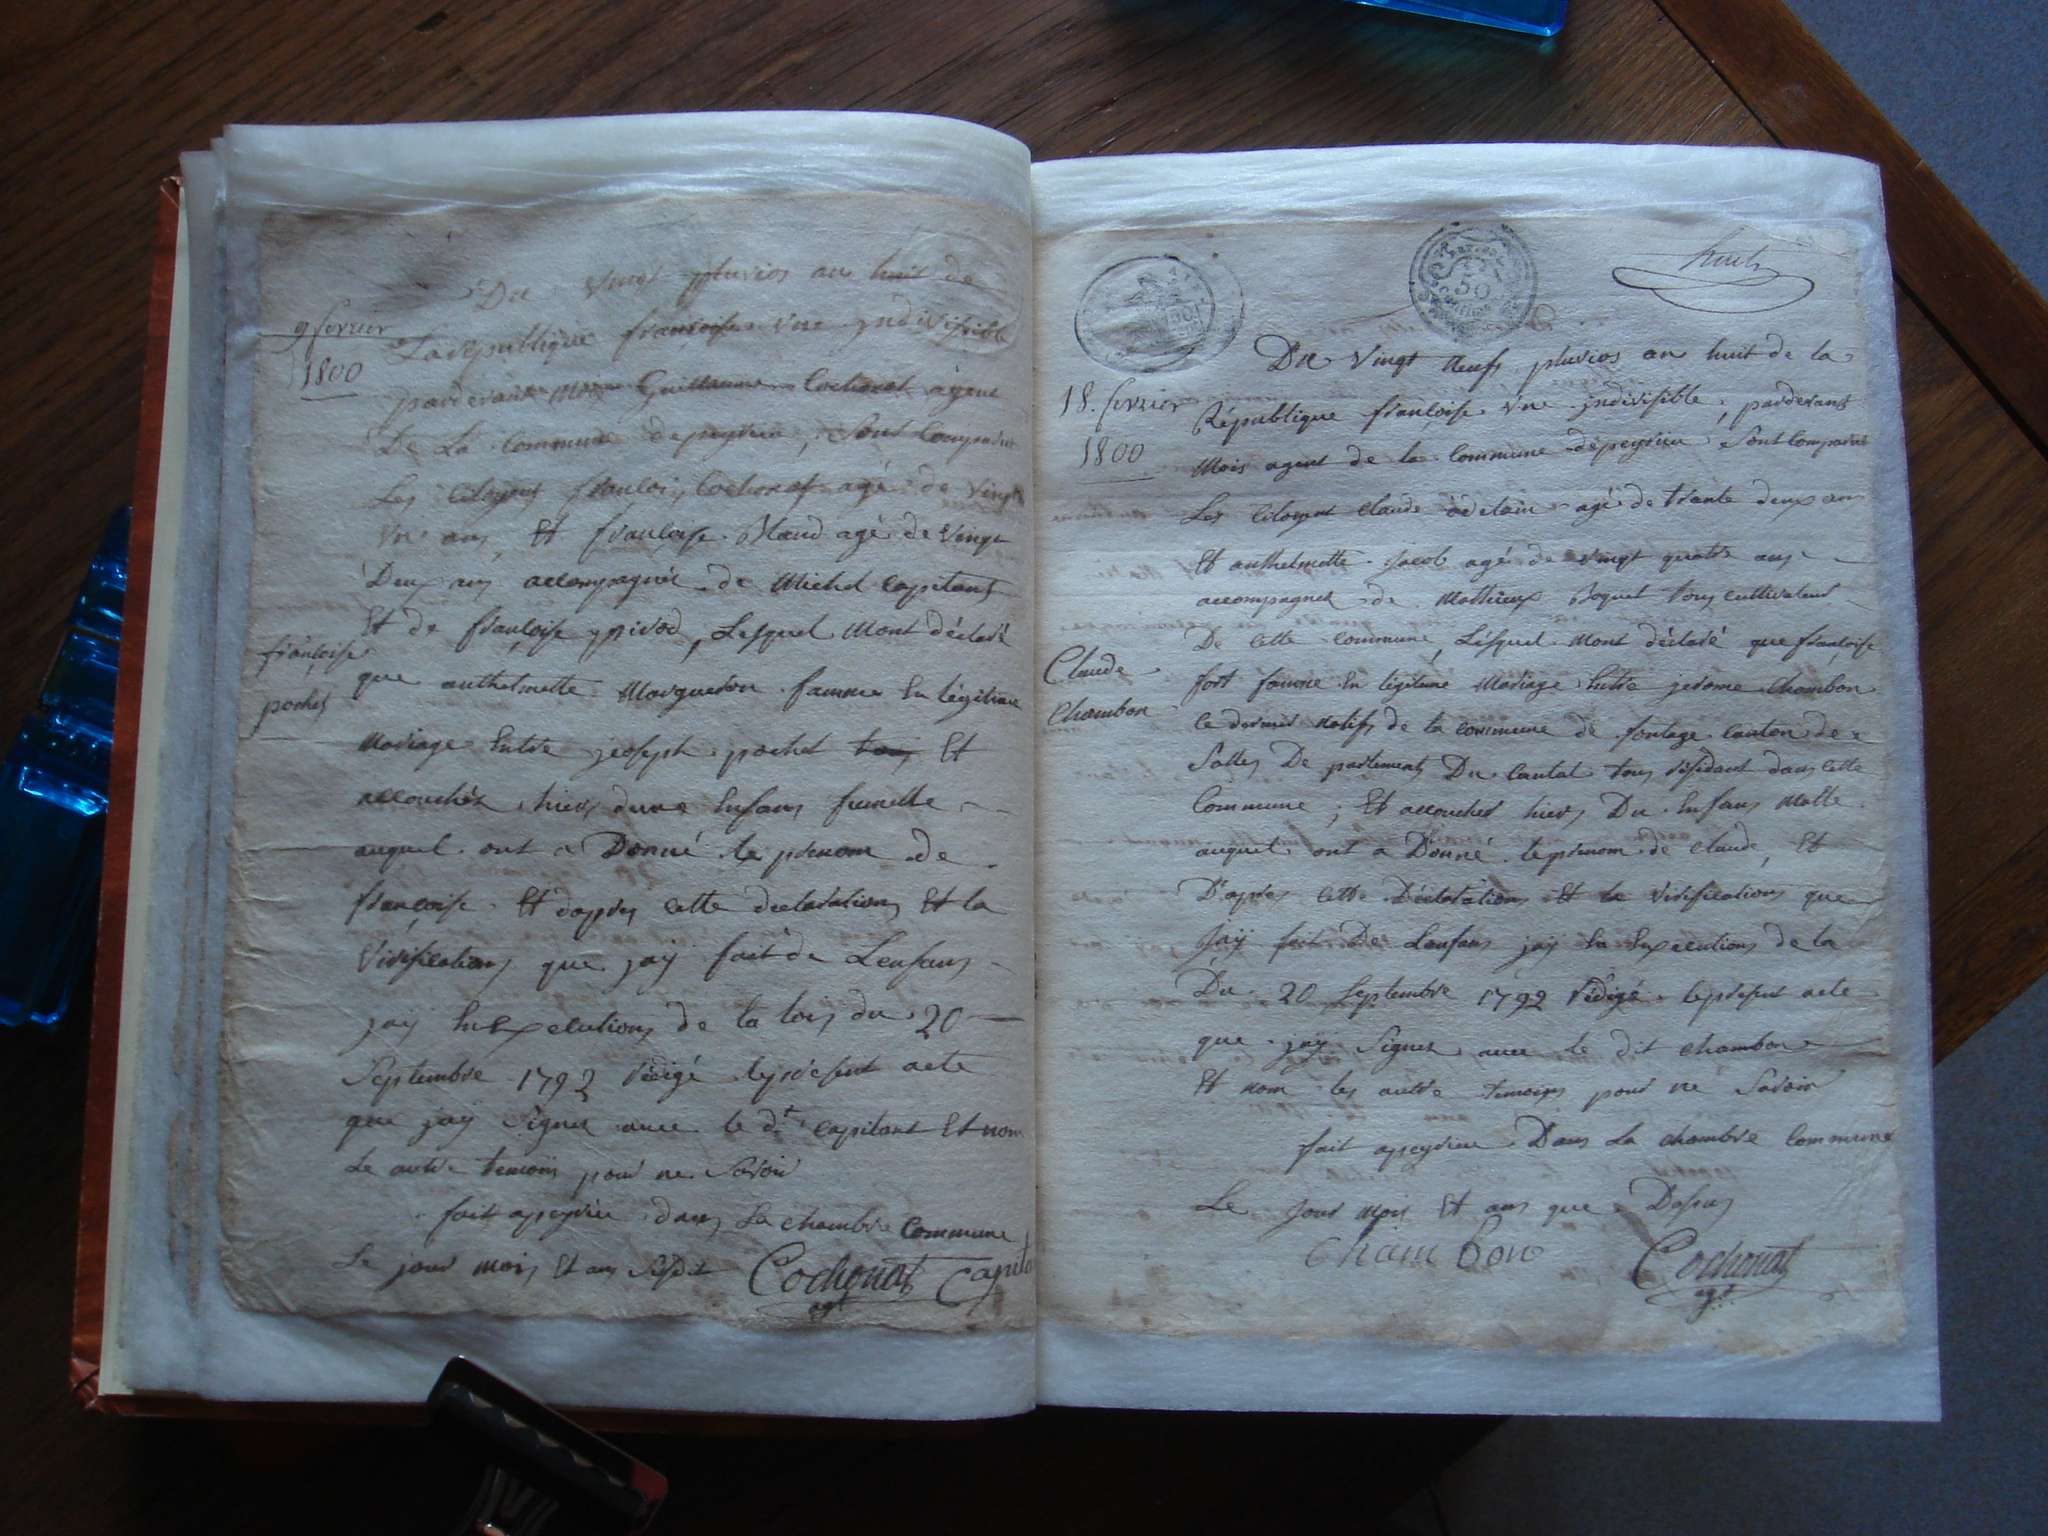 Du vingt pluvios an huit de
La république francoise une indivisible
pardevant Moi Guillaume Cochonat agent
De La Commune depeyrieu, Sont Comparus
Les Citoyens françois Cochonat agé de vingt
9 fevrier
1800
une ans, Et françoise Blaud agé de vingt
Deux ans accompagnés de Michel Capitant
Et de françoise pivod, Lesquel Mont déclaré
que anthelmette Marguedon famme En légitime
françoise
pochet
Mariage Entre joseph pochet Et
accouchés hiers dune Enfans fumelle
auquel ont a Donné le prenom de
françoise Et daprès cette declarations Et la
Vérifications que jay fait de Lenfans
jay En Execution de la lois du 20
Septembre 1792 rédigé le présent acte
que jay Signer avec le dt Capitant Et nom
Le autre temoins pour ne Savoir
fait apeyrieu dans La chambre Commune
Le jour mois Et ans Susdit Cochonat Capita
agt
50
Du vingt neufs pluvios an huit de la
République françoise une indivisible, pardevant
Mois agent de la Commune depeyrieu Sont Comparus
18. fevrier
1800
Les Citoyens Claude agé de trante deux ans
Et anthelmette Jacob agé de vingt quatre ans
accompagner de Mathieux Boquet tous cultivateur
De cette commune, Lesquel mont déclaré que françoise
fort famme En légitime Mariage Entre jerome Chambon
Claude
Chambon
ce dernier natifs de la commune de fontage canton de
Salles De partements Du Cantal tous résidant dans cette
Commune, Et accoucher hiers Du Enfans Malle
auquel ont a Donné le prenom de Claude, Et
D'apres cette Déclarations et la vérifications que
Jay fait De Lenfans jay En Executions de la
Du 20 Septembre 1792 rédigé le présent acte
que jay Signer avec le dit chambon
Et nom les autre temoins pour ne Savoir
fait apeyrieu Dans La chambre Commune
Le Jour mois Et ans que Desus
Chambon Cochonat
agt